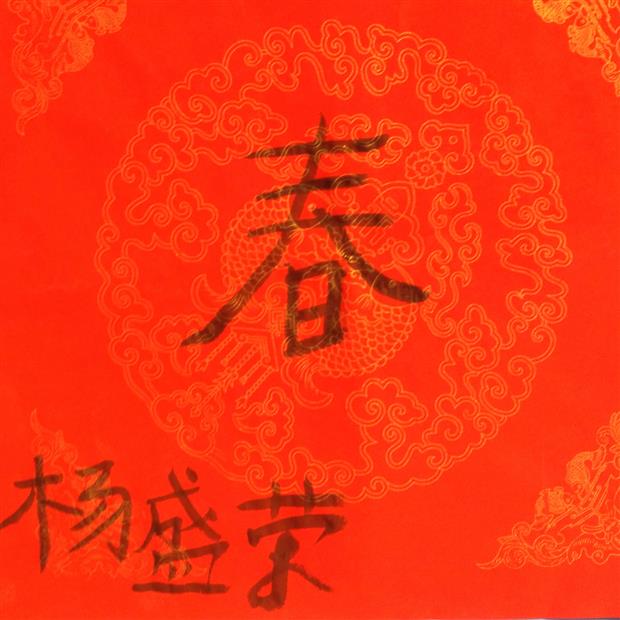 春
杨盛荣